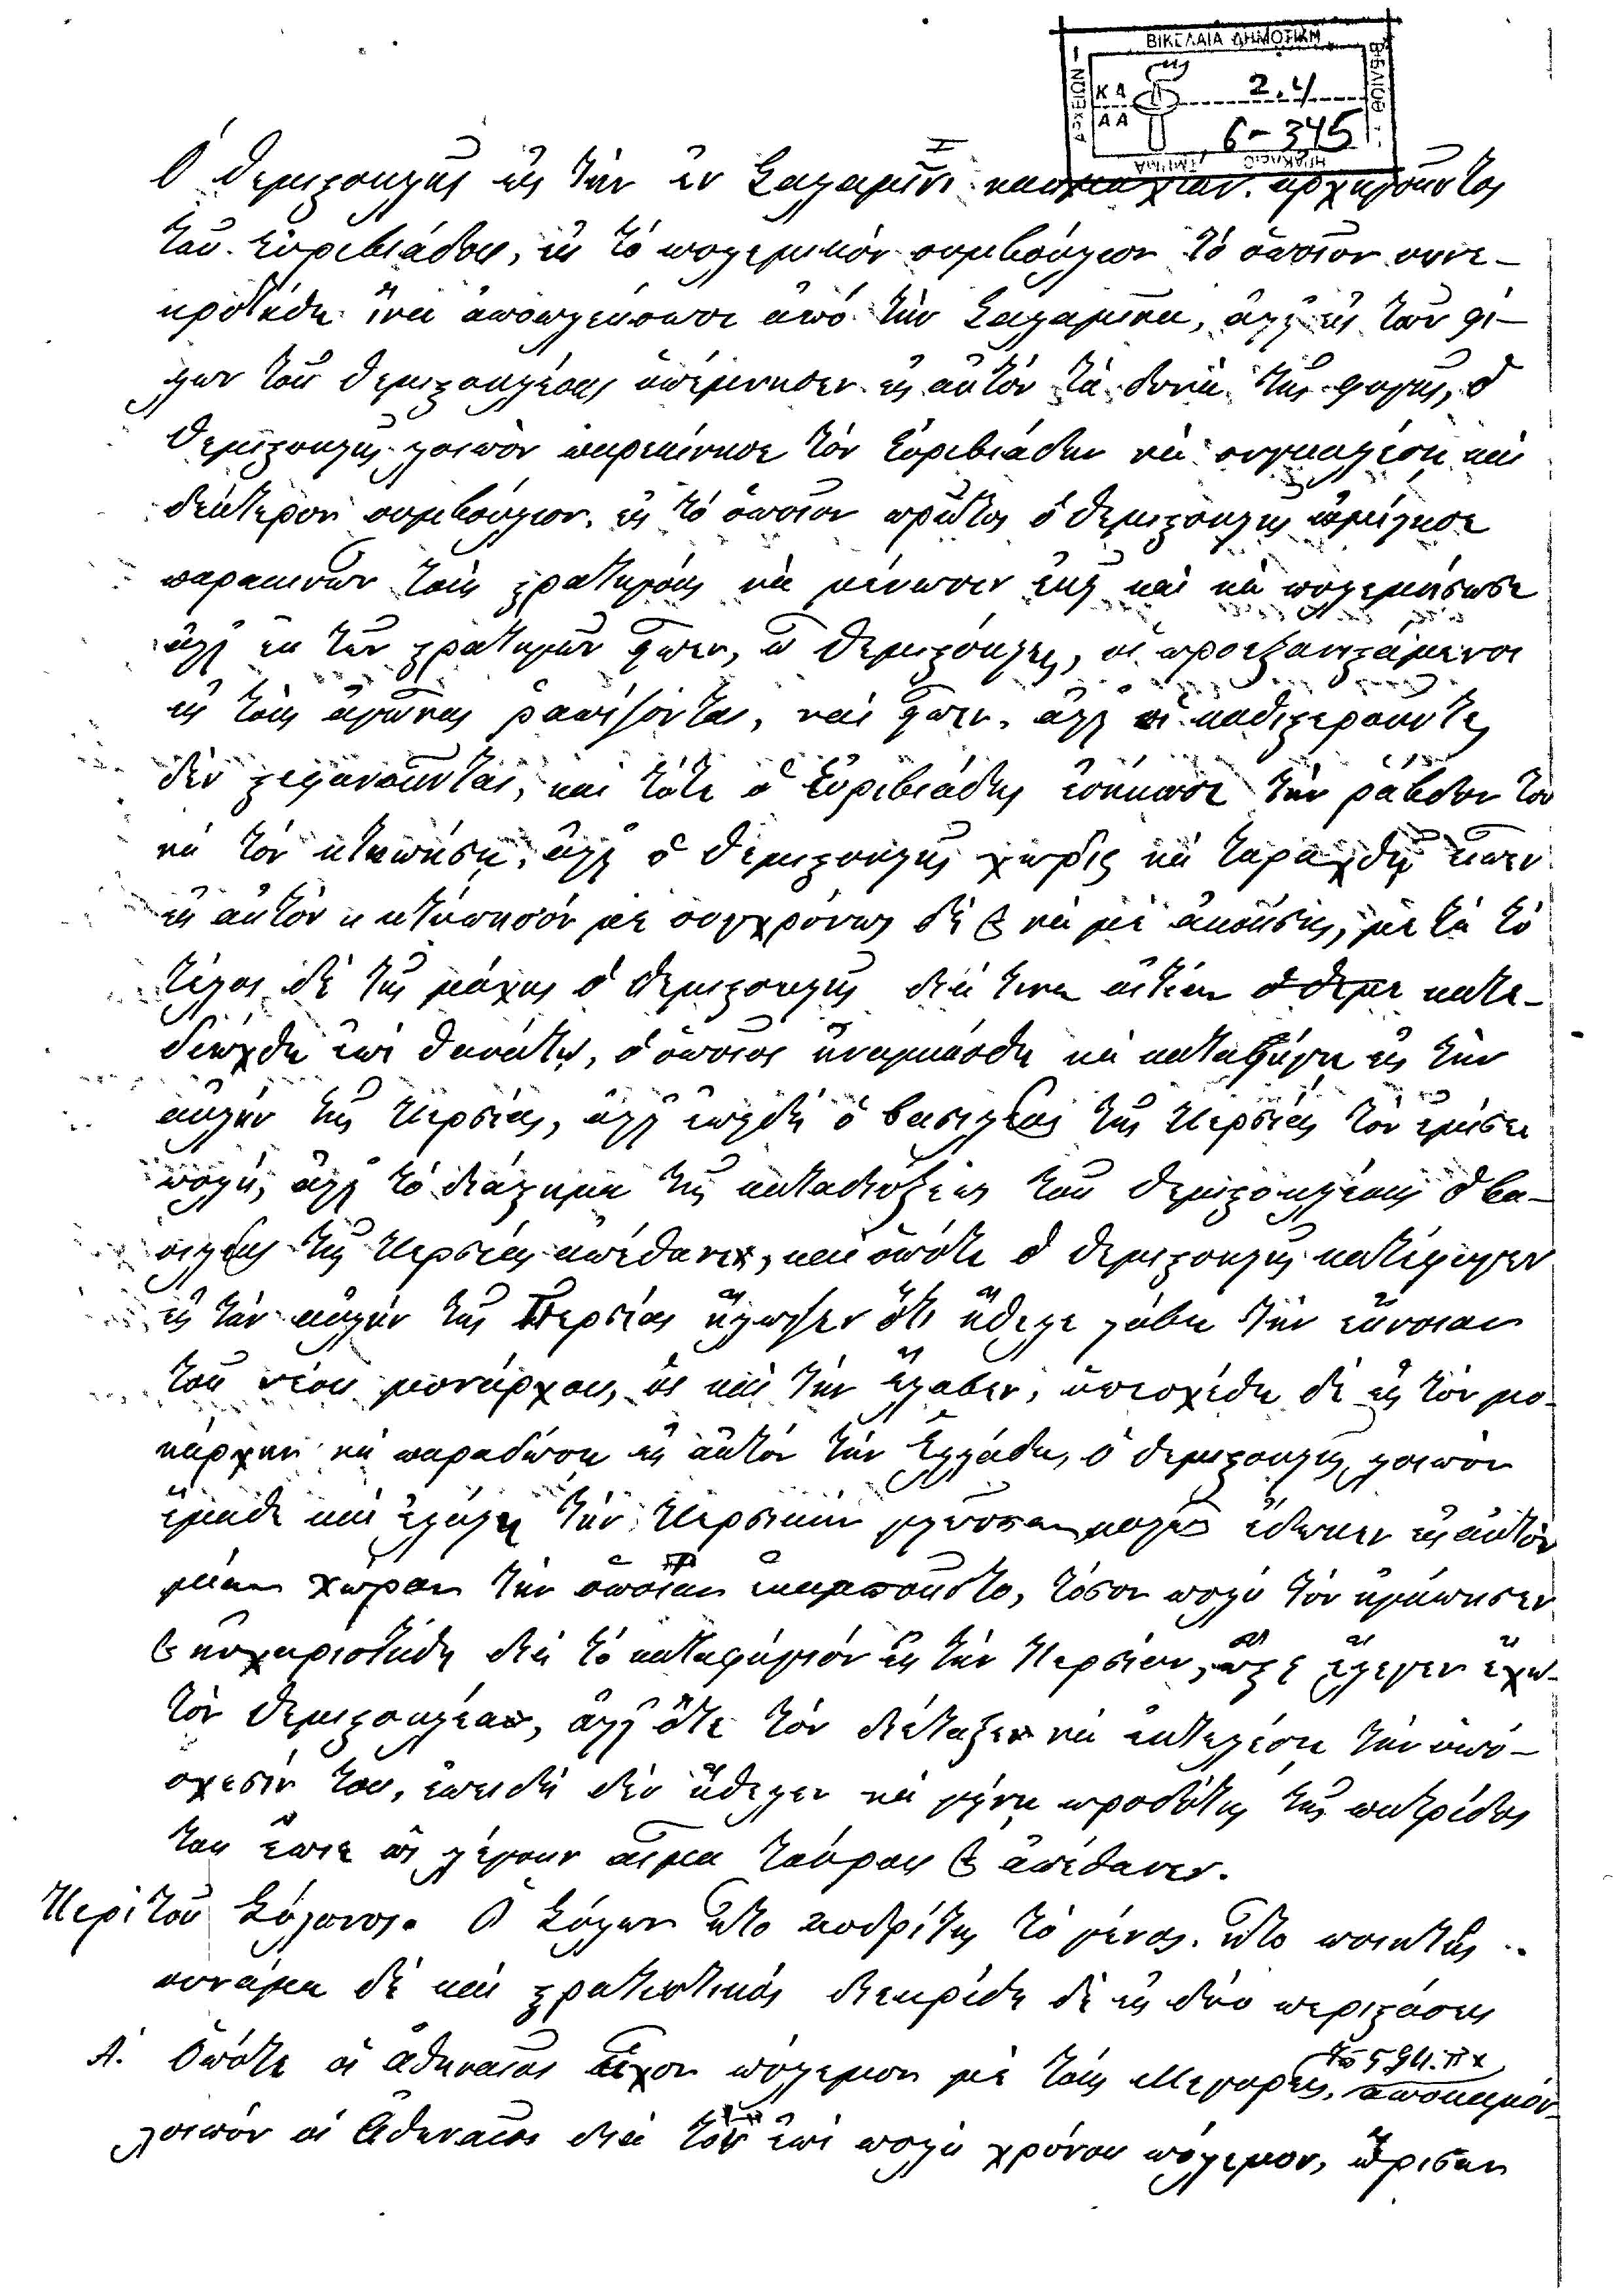 ΒΙΚΕΛΑΙΑ ΔΗΜΟΤΙΚΗ
ΒΙΒΛΙΟΘ
ΑΡΧΕΙΩΝ
Κ Δ 2.4
Α Α 6-345
ΗΡΑΚΛΕΙΟ
Ὁ Θεμιστοκλῆς εἰς τὴν ἐν Σαλαμῖνι ναυμαχίαν. ἀρχηγοῦντος
τοῦ Εὐριβιάδου, εἰς τὸ πολεμικὸν συμβούλιον τὸ ὁποῖον συνε-
κροτήθη ἵνα ἀποπλεύσωσι ἀπὸ τὴν Σαλαμῖνα, ἀλλ' εἷς τῶν φί-
λων τοῦ Θεμιστοκλέους ὑπέμνησεν εἰς αὐτὸν τὰ δεινὰ τῆς φυγῆς, ὁ
Θεμιστοκλῆς λοιπὸν παρεκίνησε τὸν Εὐριβιάδην νὰ συγκαλέσῃ καὶ
δεύτερον συμβούλιον. εἰς τὸ ὁποῖον πρῶτος ὁ Θεμιστοκλῆς ὡμίλησε
παρακινῶν τοὺς στρατηγοὺς νὰ μένωσιν ἐκεῖ καὶ νὰ πολεμήσωσι
ἀλλ' εἷς τῶν στρατηγῶν εἶπεν, ὦ Θεμιστόκλεις, οἱ προεξανιστάμενοι
εἰς τοὺς ἀγῶνας ῥαπίζονται, ναὶ εἶπεν, ἀλλ' οἱ καθυστεροῦντες
δὲν στεφανοῦνται, καὶ τότε ὁ Εὐριβιάδης ἐσήκωσε τὴν ῥάβδον του
νὰ τὸν κτυπήσῃ, ἀλλ' ὁ Θεμιστοκλῆς χωρὶς νὰ ταραχθῇ εἶπεν
εἰς αὐτὸν κτύπησόν με συγχρόνως δὲ & νὰ μὲ ἀκούσῃς, μετὰ τὸ
τέλος δὲ τῆς μάχης ὁ Θεμιστοκλῆς διά τινα αἰτίαν ὁ Θεμι κατε-
διώχθη ἐπὶ θανάτῳ, ὁ ὁποῖος ἠναγκάσθη νὰ καταφύγῃ εἰς τὴν
αὐλὴν τῆς Περσίας, ἀλλ' ἐπειδὴ ὁ βασιλεὺς τῆς Περσίας τὸν ἐμίσει
πολύ, ἀλλὰ τὸ διάστημα τῆς καταδιώξεως τοῦ Θεμιστοκλέους ὁ βα-
σιλεὺς τῆς Περσίας ἀπέθανε, καὶ ὁπότε ὁ Θεμιστοκλῆς κατέφυγεν
εἰς τὴν αὐλὴν τῆς Περσίας ἤλπιζεν ὅτι ἤθελε λάβει τὴν εὔνοιαν
τοῦ νέου μονάρχου, ὡς καὶ τὴν ἔλαβεν, ὑπεσχέθη δὲ εἰς τὸν μο-
νάρχην νὰ παραδώσῃ εἰς αὐτὸν τὴν Ἑλλάδα, ὁ Θεμιστοκλῆς λοιπὸν
ἔμαθε καὶ τὴν Περσικὴν γλῶσσαν ἔδωκεν εἰς αὐτὸν
μίαν χώραν τὴν ὁποίαν ἐκαρποῦτο, τόσον πολὺ τὸν ἠγάπησεν
& εὐχαριστήθη διὰ τὸ καταφύγιόν εἰς τὴν Περσίαν, ὥστε ἔλεγεν ἔχω
τὸν Θεμιστοκλέα, ἀλλ' ὅτε τὸν διέταξε νὰ ἐκτελέσῃ τὴν ὑπό-
σχεσίν του, ἐπειδὴ δὲν ἤθελεν νὰ γίνῃ προδότης τῆς πατρίδος
του ἔπιε ὡς λέγουν αἷμα ταύρου & ἀπέθανεν.
Περὶ τοῦ Σόλωνος. Ὁ Σόλων ἦτο Κοδρίτης τὸ γένος. ἦτο ποιητὴς
συνάμα δὲ καὶ στρατιωτικὸς διεκρίθη δὲ εἰς δύο περιστάσεις
Α. Ὁπότε οἱ Ἀθηναῖοι εἶχον πόλεμον μὲ τοὺς Μεγαρεῖς, τὸ 594. π χ ἀποκαμόν-
λοιπὸν οἱ Ἀθηναῖοι διὰ τὸν ἐπὶ πολὺ χρόνον πόλεμον, ὥρισαν